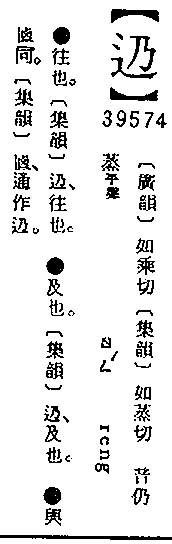 【辸】
39574
〔廣韻〕如乘切〔集韻〕如蒸切 音仍
蒸平聲
ㄖㄥˊ reng
●往也。〔集韻〕辸、往也。●及也。〔集韻〕辸、及也。●與
同。〔集韻〕 、通作辸。